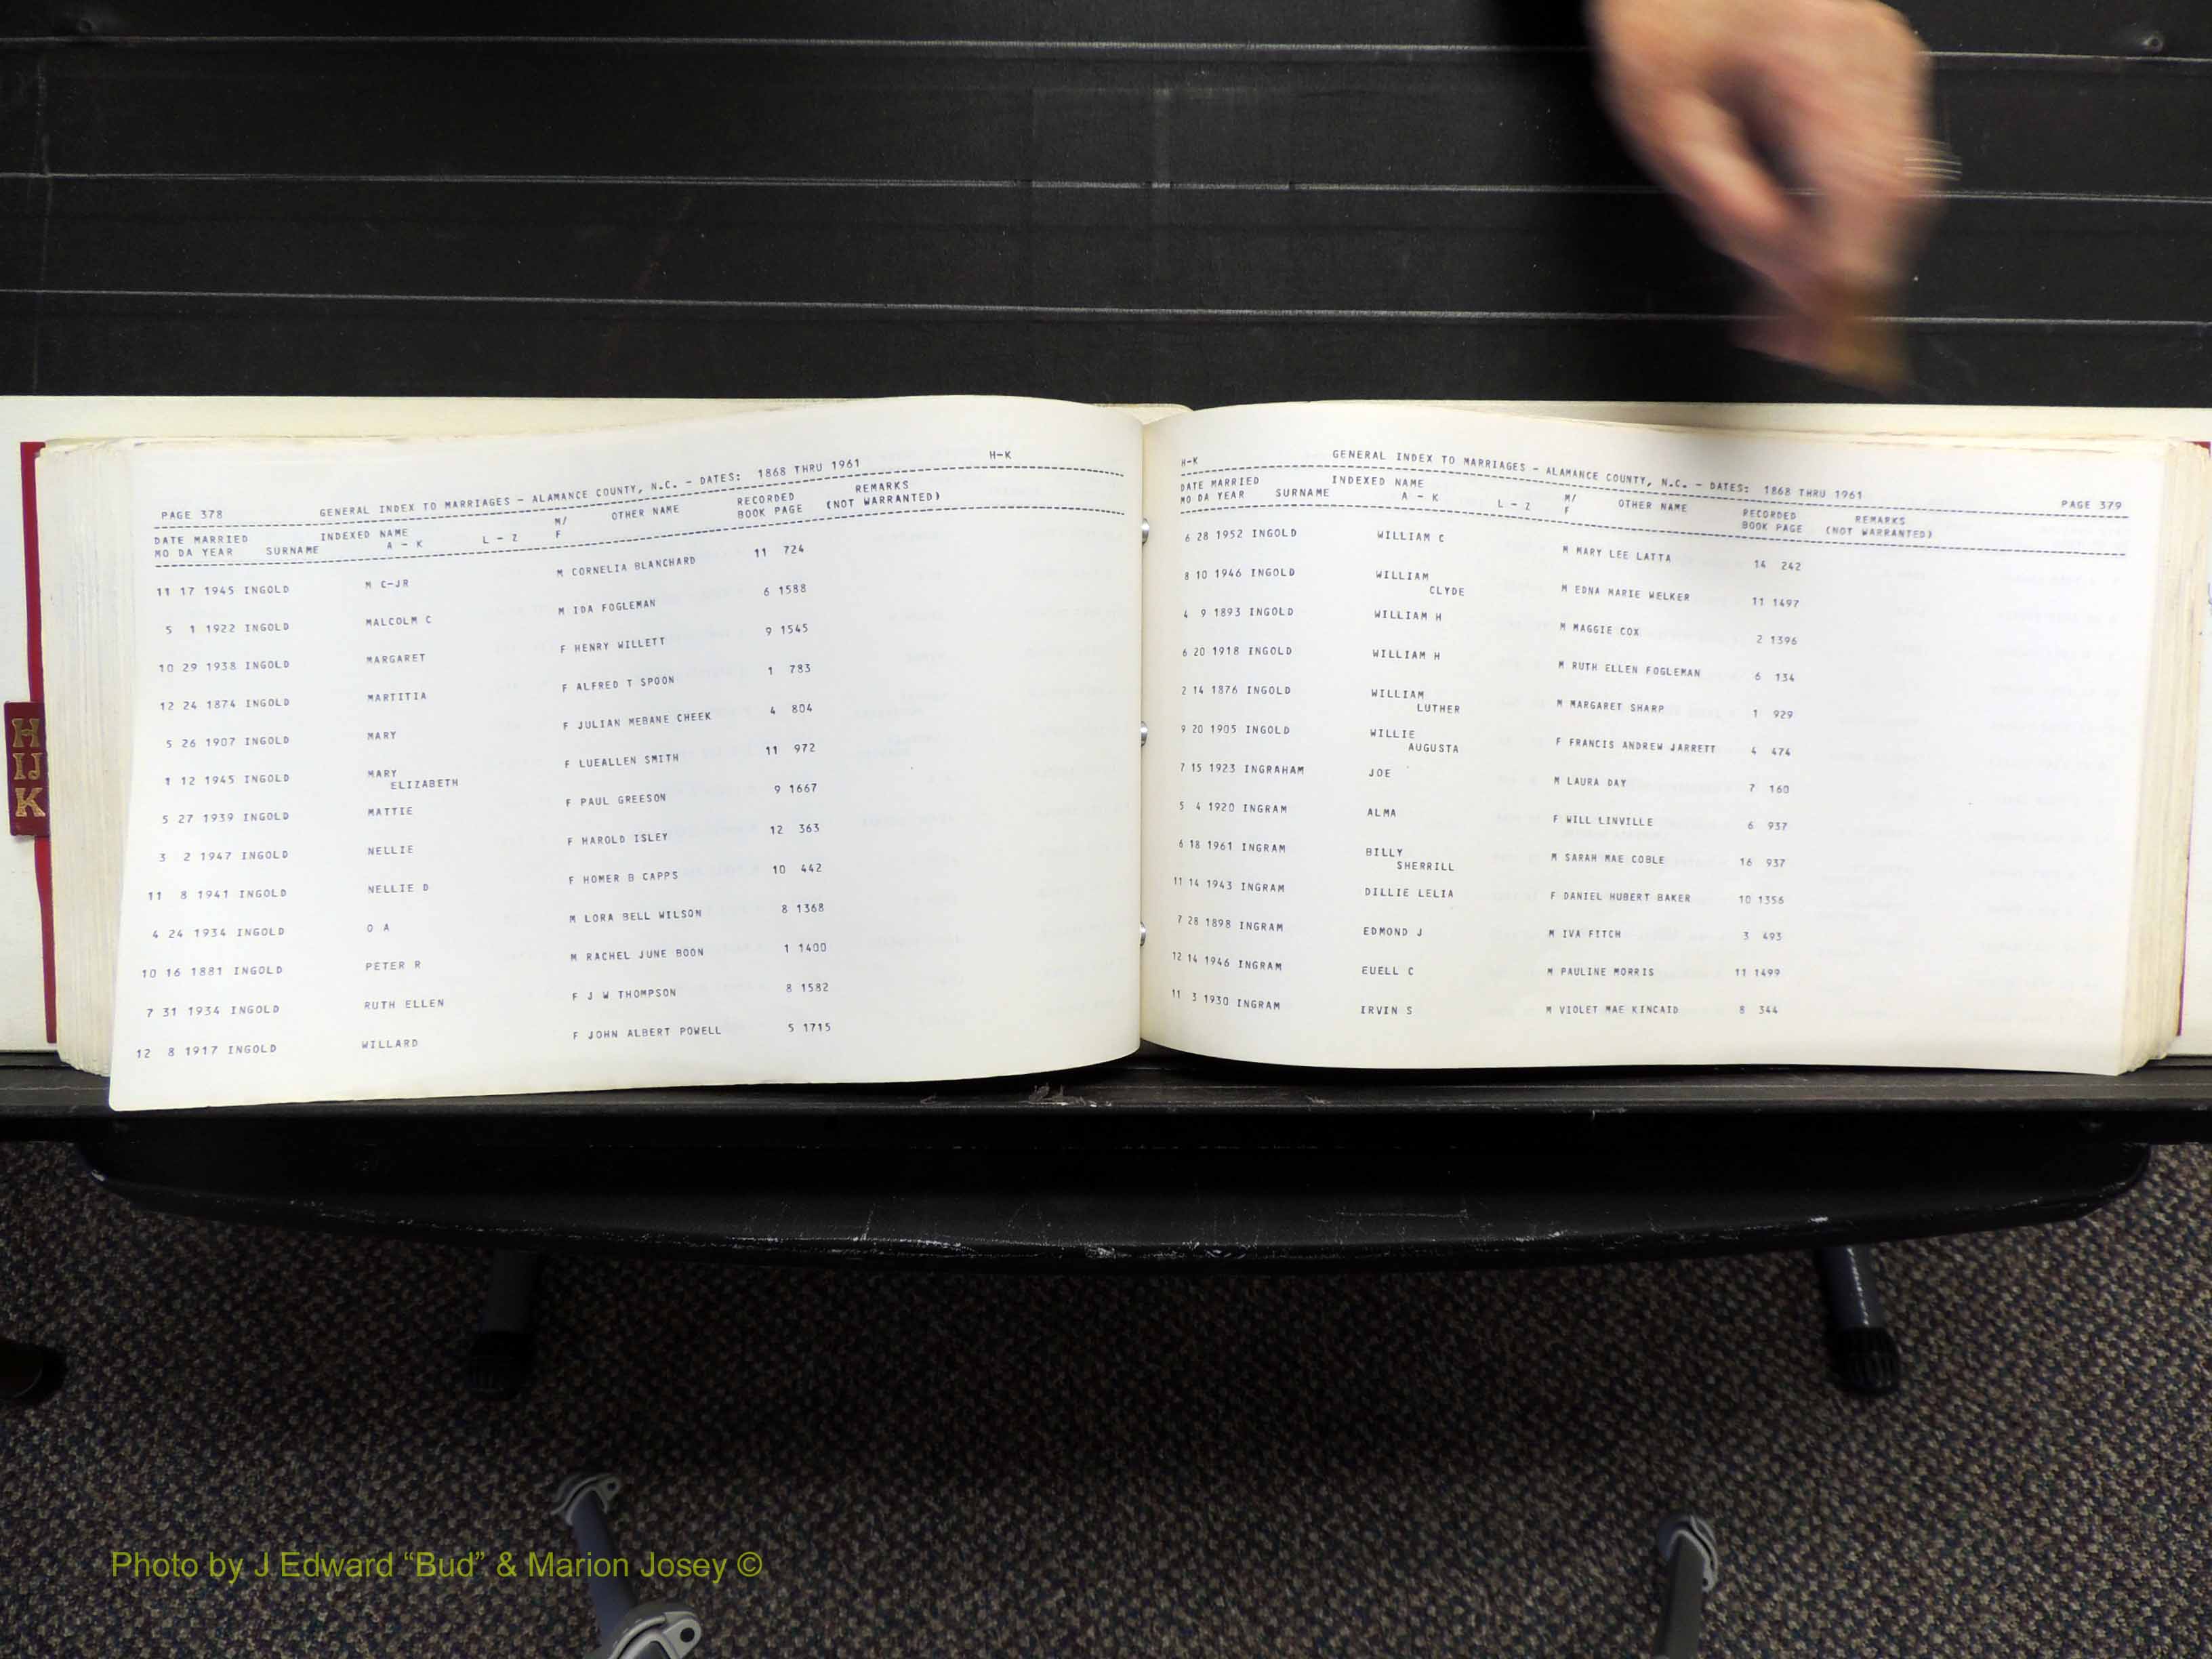 H
IJ
K
PAGE 378 GENERAL INDEX TO MARRIAGES - ALAMANCE COUNTY, N.C. - DATES: 1868 THRU 1961 H-K
DATE MARRIED INDEXED NAME M/ OTHER NAME RECORDED REMARKS
MO DA YEAR SURNAME A - K L - Z F BOOK PAGE (NOT WARRANTED)
11 17 1945 INGOLD M C-JR M CORNELIA BLANCHARD 11 724
5 1 1922 INGOLD MALCOLM C M IDA FOGLEMAN 6 1588
10 29 1938 INGOLD MARGARET F HENRY WILLETT 9 1545
12 24 1874 INGOLD MARTITIA F ALFRED T SPOON 1 783
5 26 1907 INGOLD MARY F JULIAN MEBANE CHEEK 4 804
1 12 1945 INGOLD MARY F LUEALLEN SMITH 11 972
ELIZABETH
5 27 1939 INGOLD MATTIE F PAUL GREESON 9 1667
3 2 1947 INGOLD NELLIE F HAROLD ISLEY 12 363
11 8 1941 INGOLD NELLIE D F HOMER B CAPPS 10 442
4 24 1934 INGOLD O A M LORA BELL WILSON 8 1368
10 16 1881 INGOLD PETER R M RACHEL JUNE BOON 1 1400
7 31 1934 INGOLD RUTH ELLEN F J W THOMPSON 8 1582
12 8 1917 INGOLD WILLARD F JOHN ALBERT POWELL 5 1715
H-K GENERAL INDEX TO MARRIAGES - ALAMANCE COUNTY, N.C. - DATES: 1868 THRU 1961 PAGE 379
DATE MARRIED INDEXED NAME M/ OTHER NAME RECORDED REMARKS
MO DA YEAR SURNAME A - K L - Z F BOOK PAGE (NOT WARRANTED)
6 28 1952 INGOLD WILLIAM C M MARY LEE LATTA 14 242
8 10 1946 INGOLD WILLIAM M EDNA MARIE WELKER 11 1497
CLYDE
4 9 1893 INGOLD WILLIAM H M MAGGIE COX 2 1396
6 20 1918 INGOLD WILLIAM H M RUTH ELLEN FOGLEMAN 6 134
2 14 1876 INGOLD WILLIAM M MARGARET SHARP 1 929
LUTHER
9 20 1905 INGOLD WILLIE F FRANCIS ANDREW JARRETT 4 474
AUGUSTA
7 15 1923 INGRAHAM JOE M LAURA DAY 7 160
5 4 1920 INGRAM ALMA F WILL LINVILLE 6 937
6 18 1961 INGRAM BILLY M SARAH MAE COBLE 16 937
SHERRILL
11 14 1943 INGRAM DILLIE LELIA F DANIEL HUBERT BAKER 10 1356
7 28 1898 INGRAM EDMOND J M IVA FITCH 3 493
12 14 1946 INGRAM EUELL C M PAULINE MORRIS 11 1499
11 3 1930 INGRAM IRVIN S M VIOLET MAE KINCAID 8 344
Photo by J Edward “Bud” & Marion Josey ©